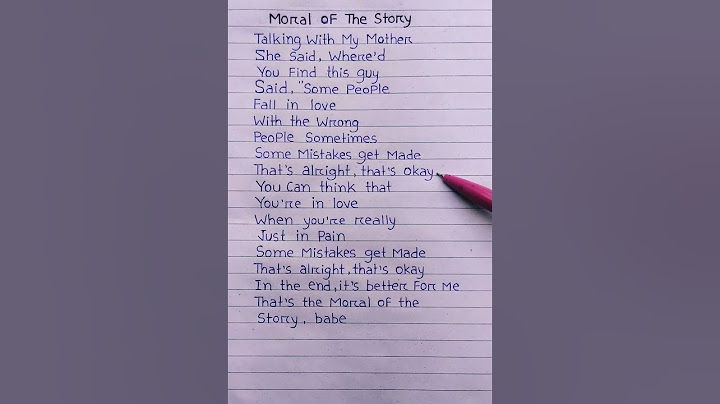 Moral OF The Story
Talking With My Mother
She Said, Where'd
You Find this guy
Said, "Some People
Fall in love
With the Wrong
People Sometimes
Some Mistakes get Made
That's alright, that's okay
You Can think that
You're in love
When you're really
Just in Pain
Some Mistakes get Made
That's alright, that's okay
In the end, it's better For Me
That's the Moral of the
Story, babe